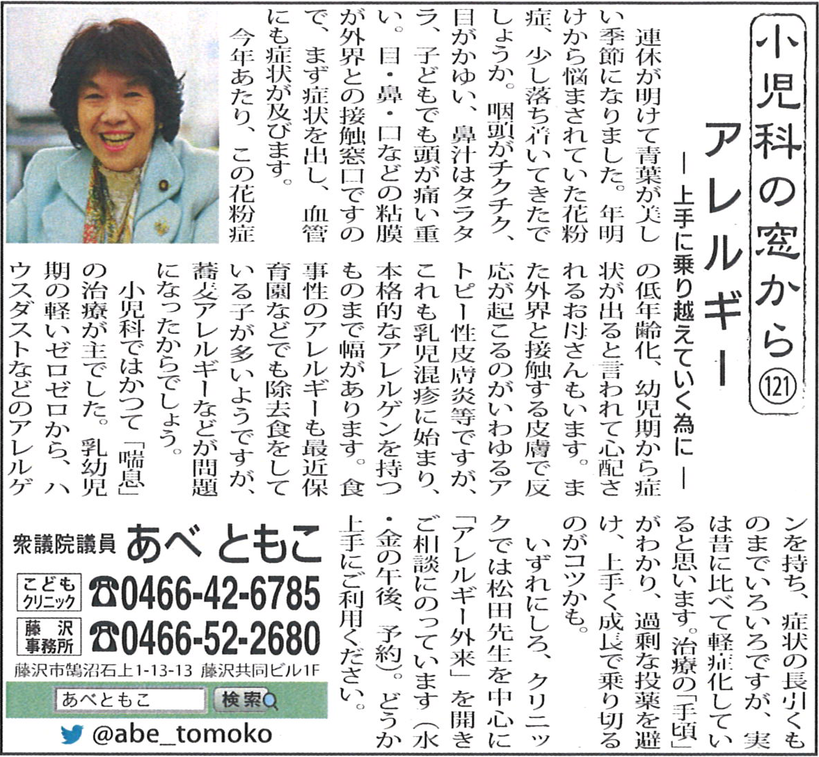 小児科の窓から 121
アレルギー
― 上手に乗り越えていく為に ―
連休が明けて青葉が美し
い季節になりました。年明
けから悩まされていた花粉
症、少し落ち着いてきたで
しょうか。咽頭がチクチク、
目がかゆい、鼻汁はタラタ
ラ、子どもでも頭が痛い重
い。目・鼻・口などの粘膜
が外界との接触窓口ですの
で、まず症状を出し、血管
にも症状が及びます。
今年あたり、この花粉症
の低年齢化、幼児期から症
状が出ると言われて心配さ
れるお母さんもいます。ま
た外界と接触する皮膚で反
応が起こるのがいわゆるア
トピー性皮膚炎等ですが、
これも乳児湿疹に始まり、
本格的なアレルゲンを持つ
ものまで幅があります。食
事性のアレルギーも最近保
育園などでも除去食をして
いる子が多いようですが、
蕎麦アレルギーなどが問題
になったからでしょう。
小児科ではかつて「喘息」
の治療が主でした。乳幼児
期の軽いゼロゼロから、ハ
ウスダストなどのアレルゲ
ンを持ち、症状の長引くも
のまでいろいろですが、実
は昔に比べて軽症化してい
ると思います。治療の「手頃」
がわかり、過剰な投薬を避
け、上手く成長で乗り切る
のがコツかも。
いずれにしろ、クリニッ
クでは松田先生を中心に
「アレルギー外来」を開き
ご相談にのっています（水
・金の午後、予約）。どうか
上手にご利用ください。
衆議院議員 あべ ともこ
こどもクリニック ☎0466-42-6785
藤沢事務所 ☎0466-52-2680
藤沢市鵠沼石上1-13-13 藤沢共同ビル1F
あべともこ 検索
@abe_tomoko